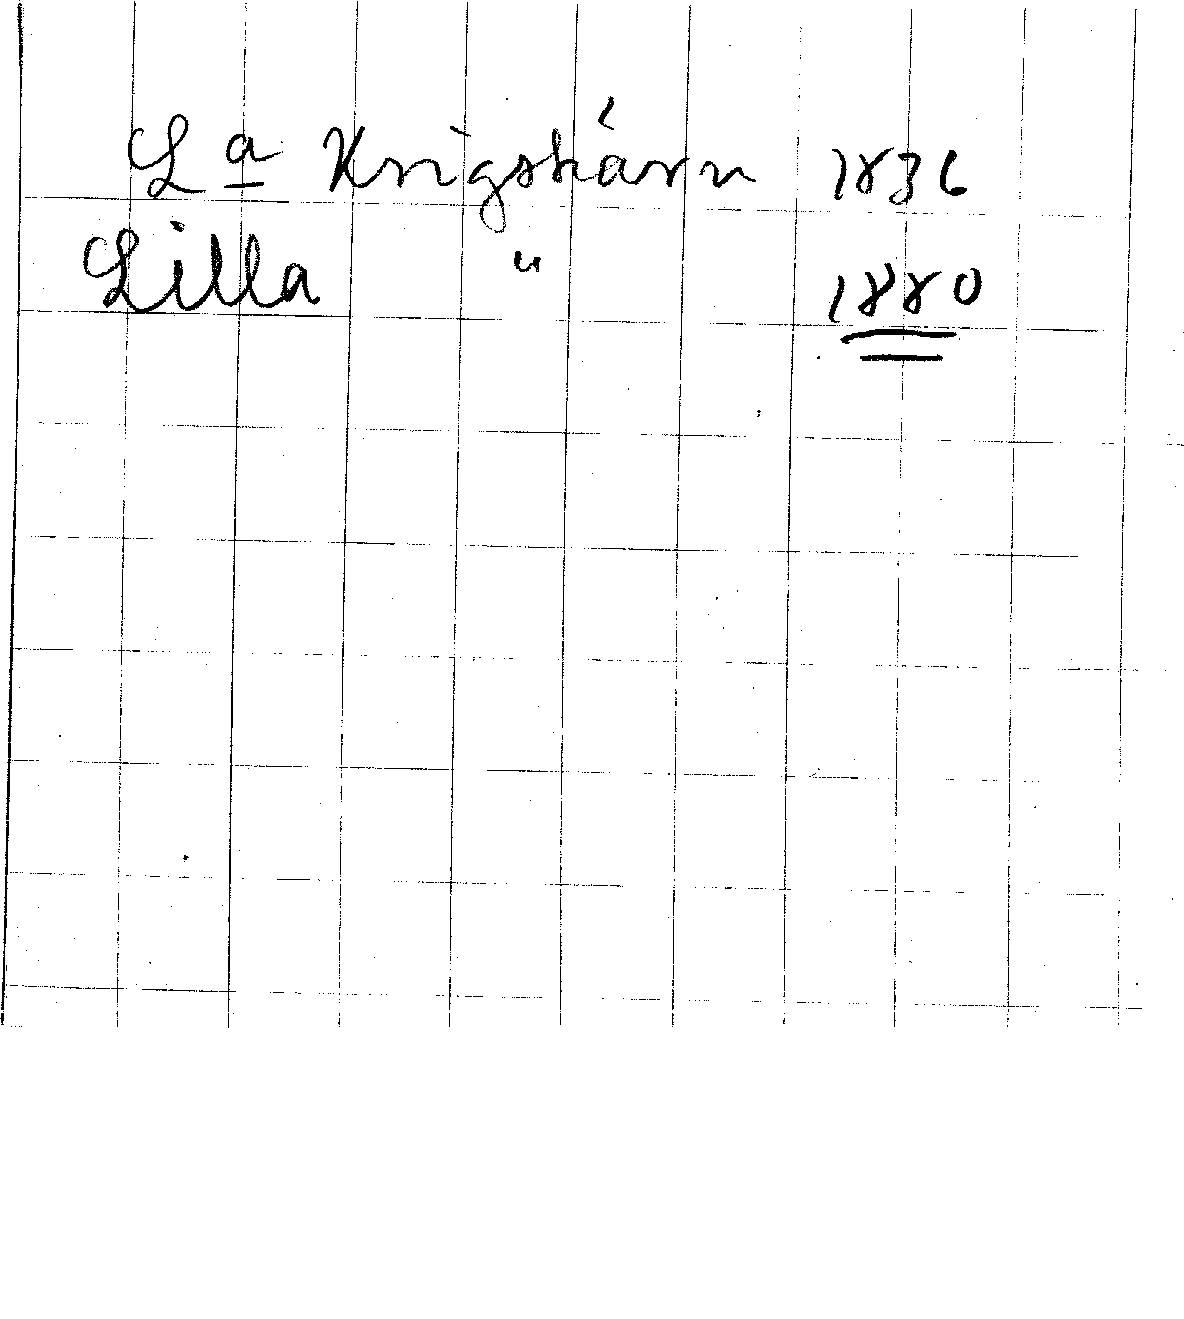 La Krigstjärn 1836
Lilla " 1880